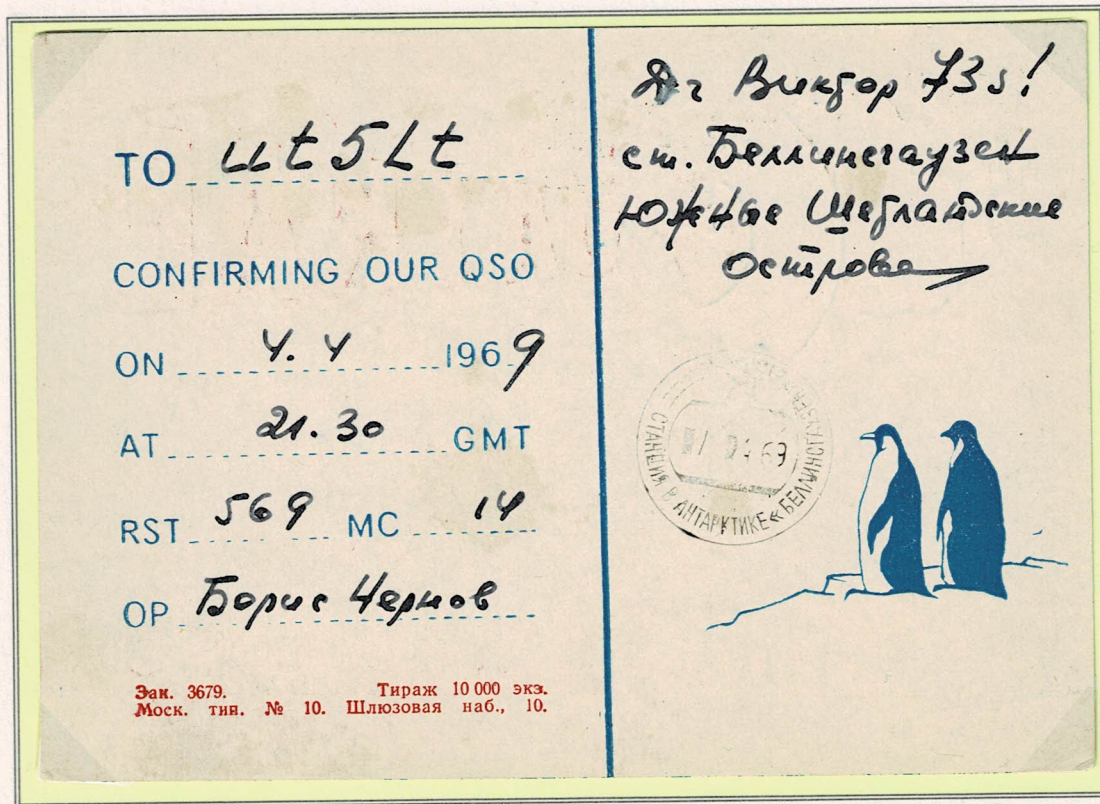 TO ut5Lt
CONFIRMING OUR QSO
ON 4.4 1969
AT 21.30 GMT
RST 569 MC 14
OP Борис Чернов
Зак. 3679. Тираж 10 000 экз.
Моск. тип. № 10. Шлюзовая наб., 10.
Виктор 73s!
ст. Беллинсгаузен
Южные Шетландские
Острова
СТАНЦИЯ В АНТАРКТИКЕ «БЕЛЛИНСГАУЗЕН»
04 69